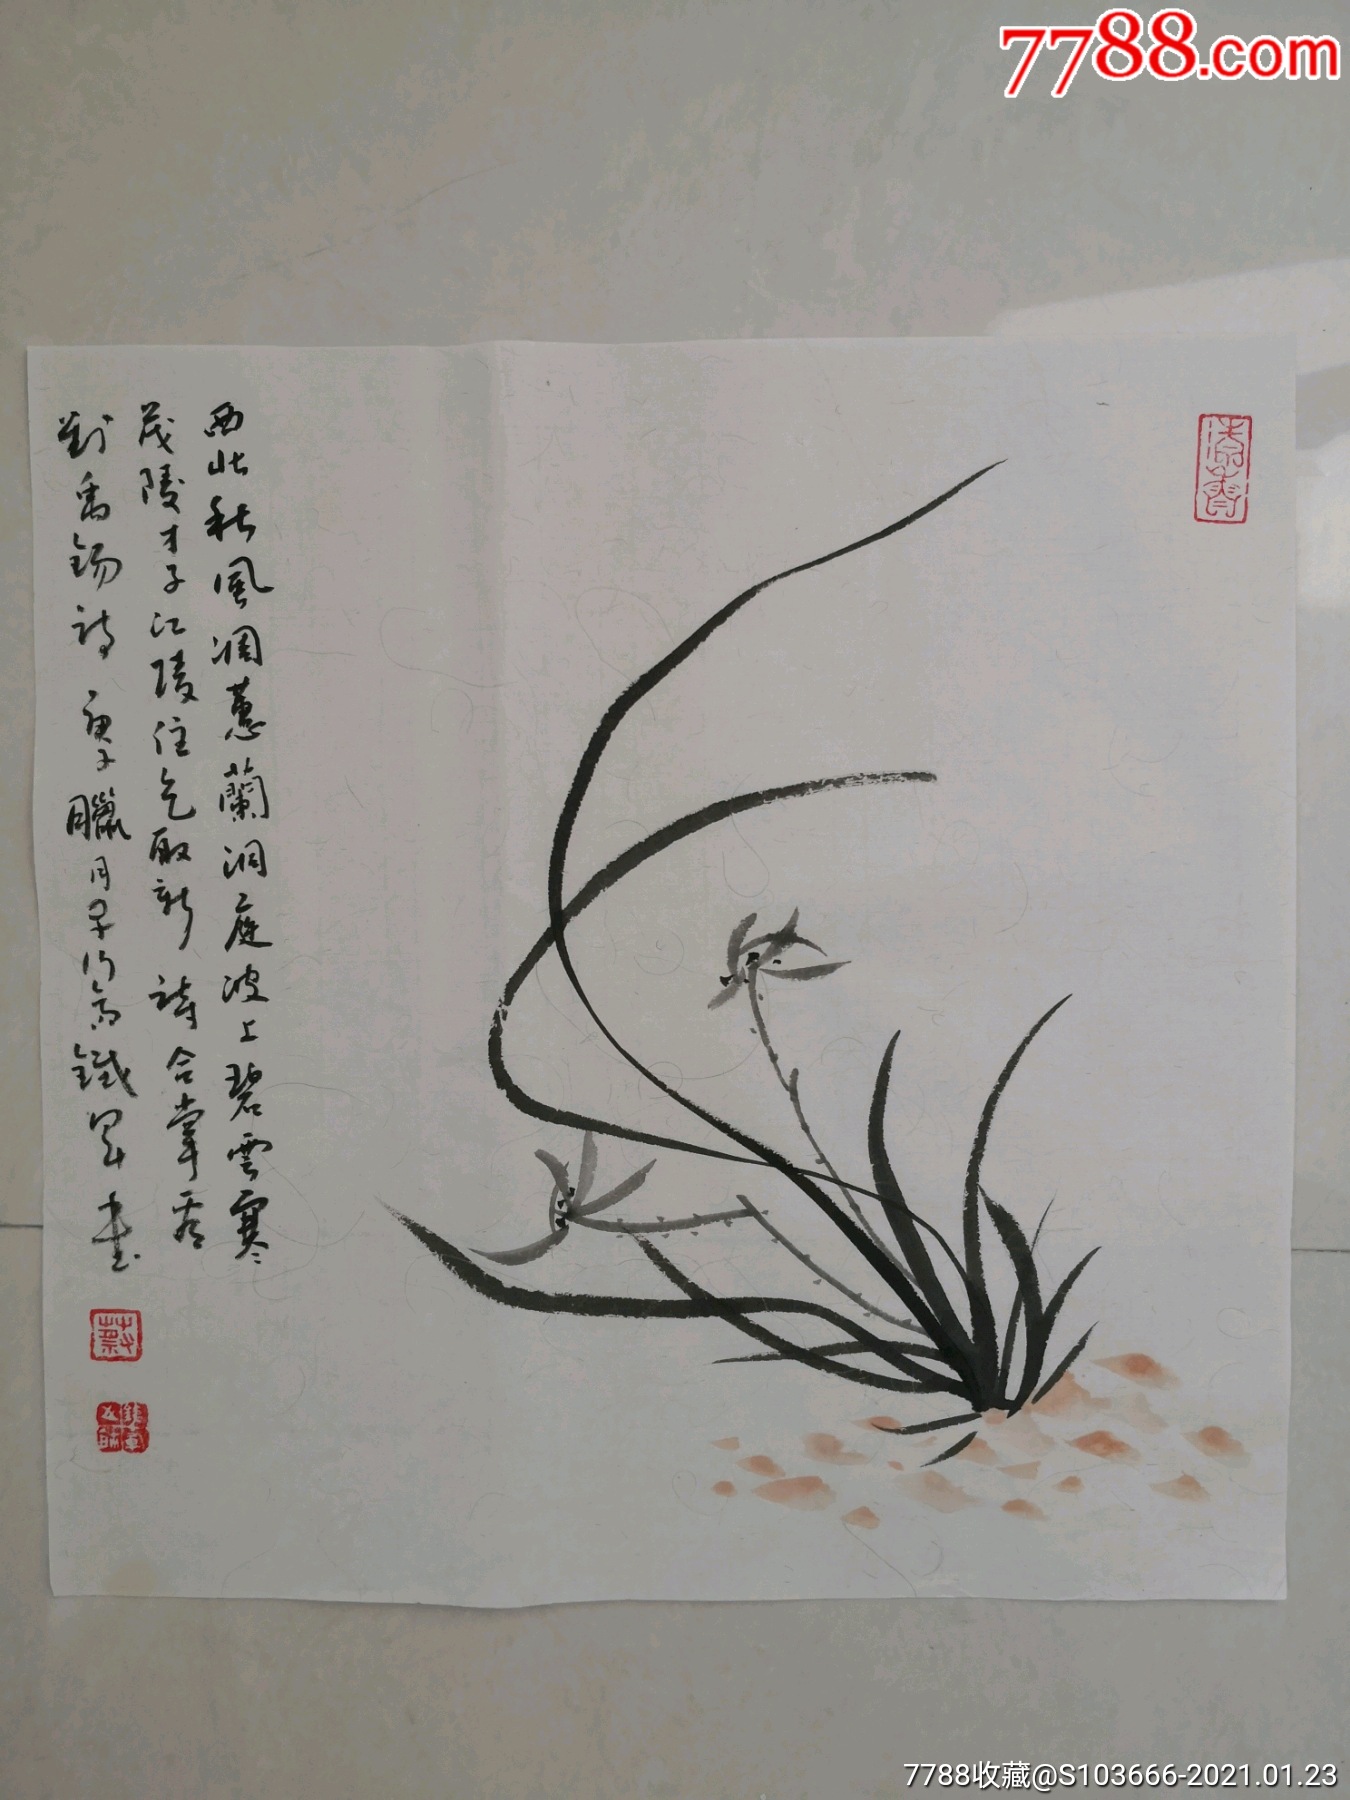 7788.com
西北秋風凋蕙蘭洞庭波上碧雲寒
茂陵才子江陵住乞取新詩合掌看
劉禹錫詩 庚子臘月 鐵軍書
蔡
7788收藏@S103666-2021.01.23